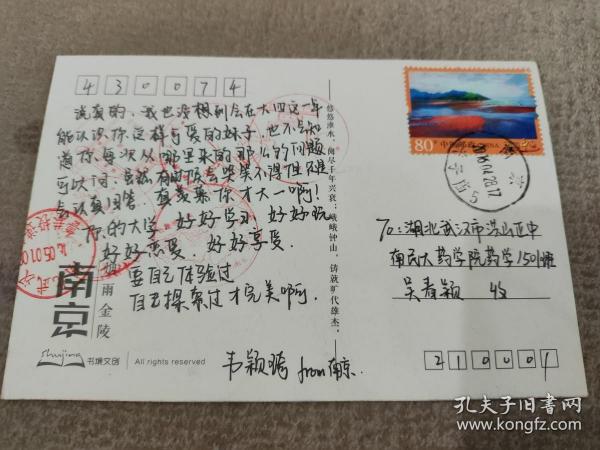 430074
说真的，我也没想到会在大四这一年
能认识你这样可爱的妹子，也不知
道你每次从哪里来的那么的问题
可以问，虽然有时候会哭笑不得但还是
会认真回答，真羡慕你才大一啊！
你的大学，好好学习，好好玩
好好恋爱，好好享受，
要自己体验过
自己探索过才完美啊。
悠悠淮水，阅尽千年兴衰；峨峨钟山，铸就旷代雄杰。
南京
烟雨金陵
Shujing 书境文创 All rights reserved
韦颖琦 from 南京.
80分
中国邮政 CHINA
2016.04.28.17
To：湖北武汉市洪山区中
南民大药学院药学1501班
吴春颖 收
210004
孔夫子旧书网
www.kongfz.com